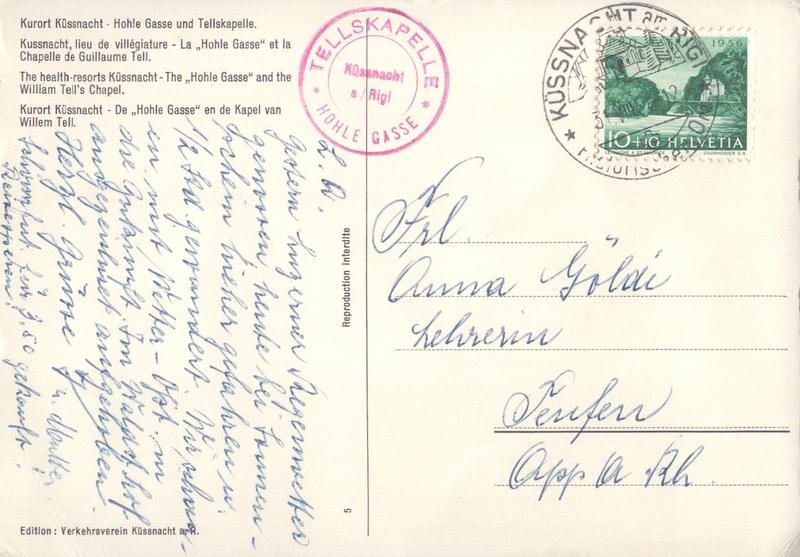 Kurort Küssnacht - Hohle Gasse und Tellskapelle.
Kussnacht, lieu de villégiature - La „Hohle Gasse“ et la
Chapelle de Guillaume Tell.
The health-resorts Küssnacht - The „Hohle Gasse“ and the
William Tell's Chapel.
Kurort Küssnacht - De „Hohle Gasse“ en de Kapel van
Willem Tell.
TELLSKAPELLE
Küssnacht
a/Rigi
* HOHLE GASSE *
KÜSSNACHT am RIGI
1956
10+10 HELVETIA
COURVOISIER S.A.
L. A.
Gestern Luzerner Regenwetter
genossen, heute bei Sonnen-
schein hieher gefahren u.
1/2 Std gewandert. Wir
mit Vetter
die Ankunft. Im Waldhof
ausgezeichnet aufgehoben
Herzl. Grüsse
u. Mutter
Schirm für 3.50 gekauft.
Reproduction interdite
5
Frl.
Anna Göldi
Lehrerin
Teufen
App A. Rh.
Edition: Verkehrsverein Küssnacht a. R.